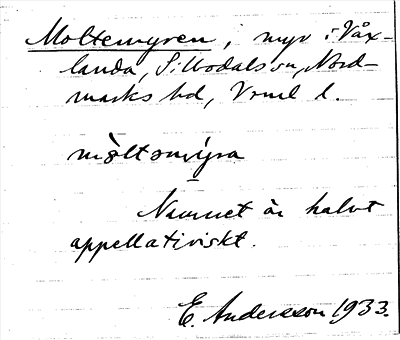 Moltemyren, myr i Våx-
landa, Sillbodals sn, Nord-
marks hd, Vrml l.
mòltǝmýra
Namnet är halvt
appellativiskt.
E. Andersson 1933.